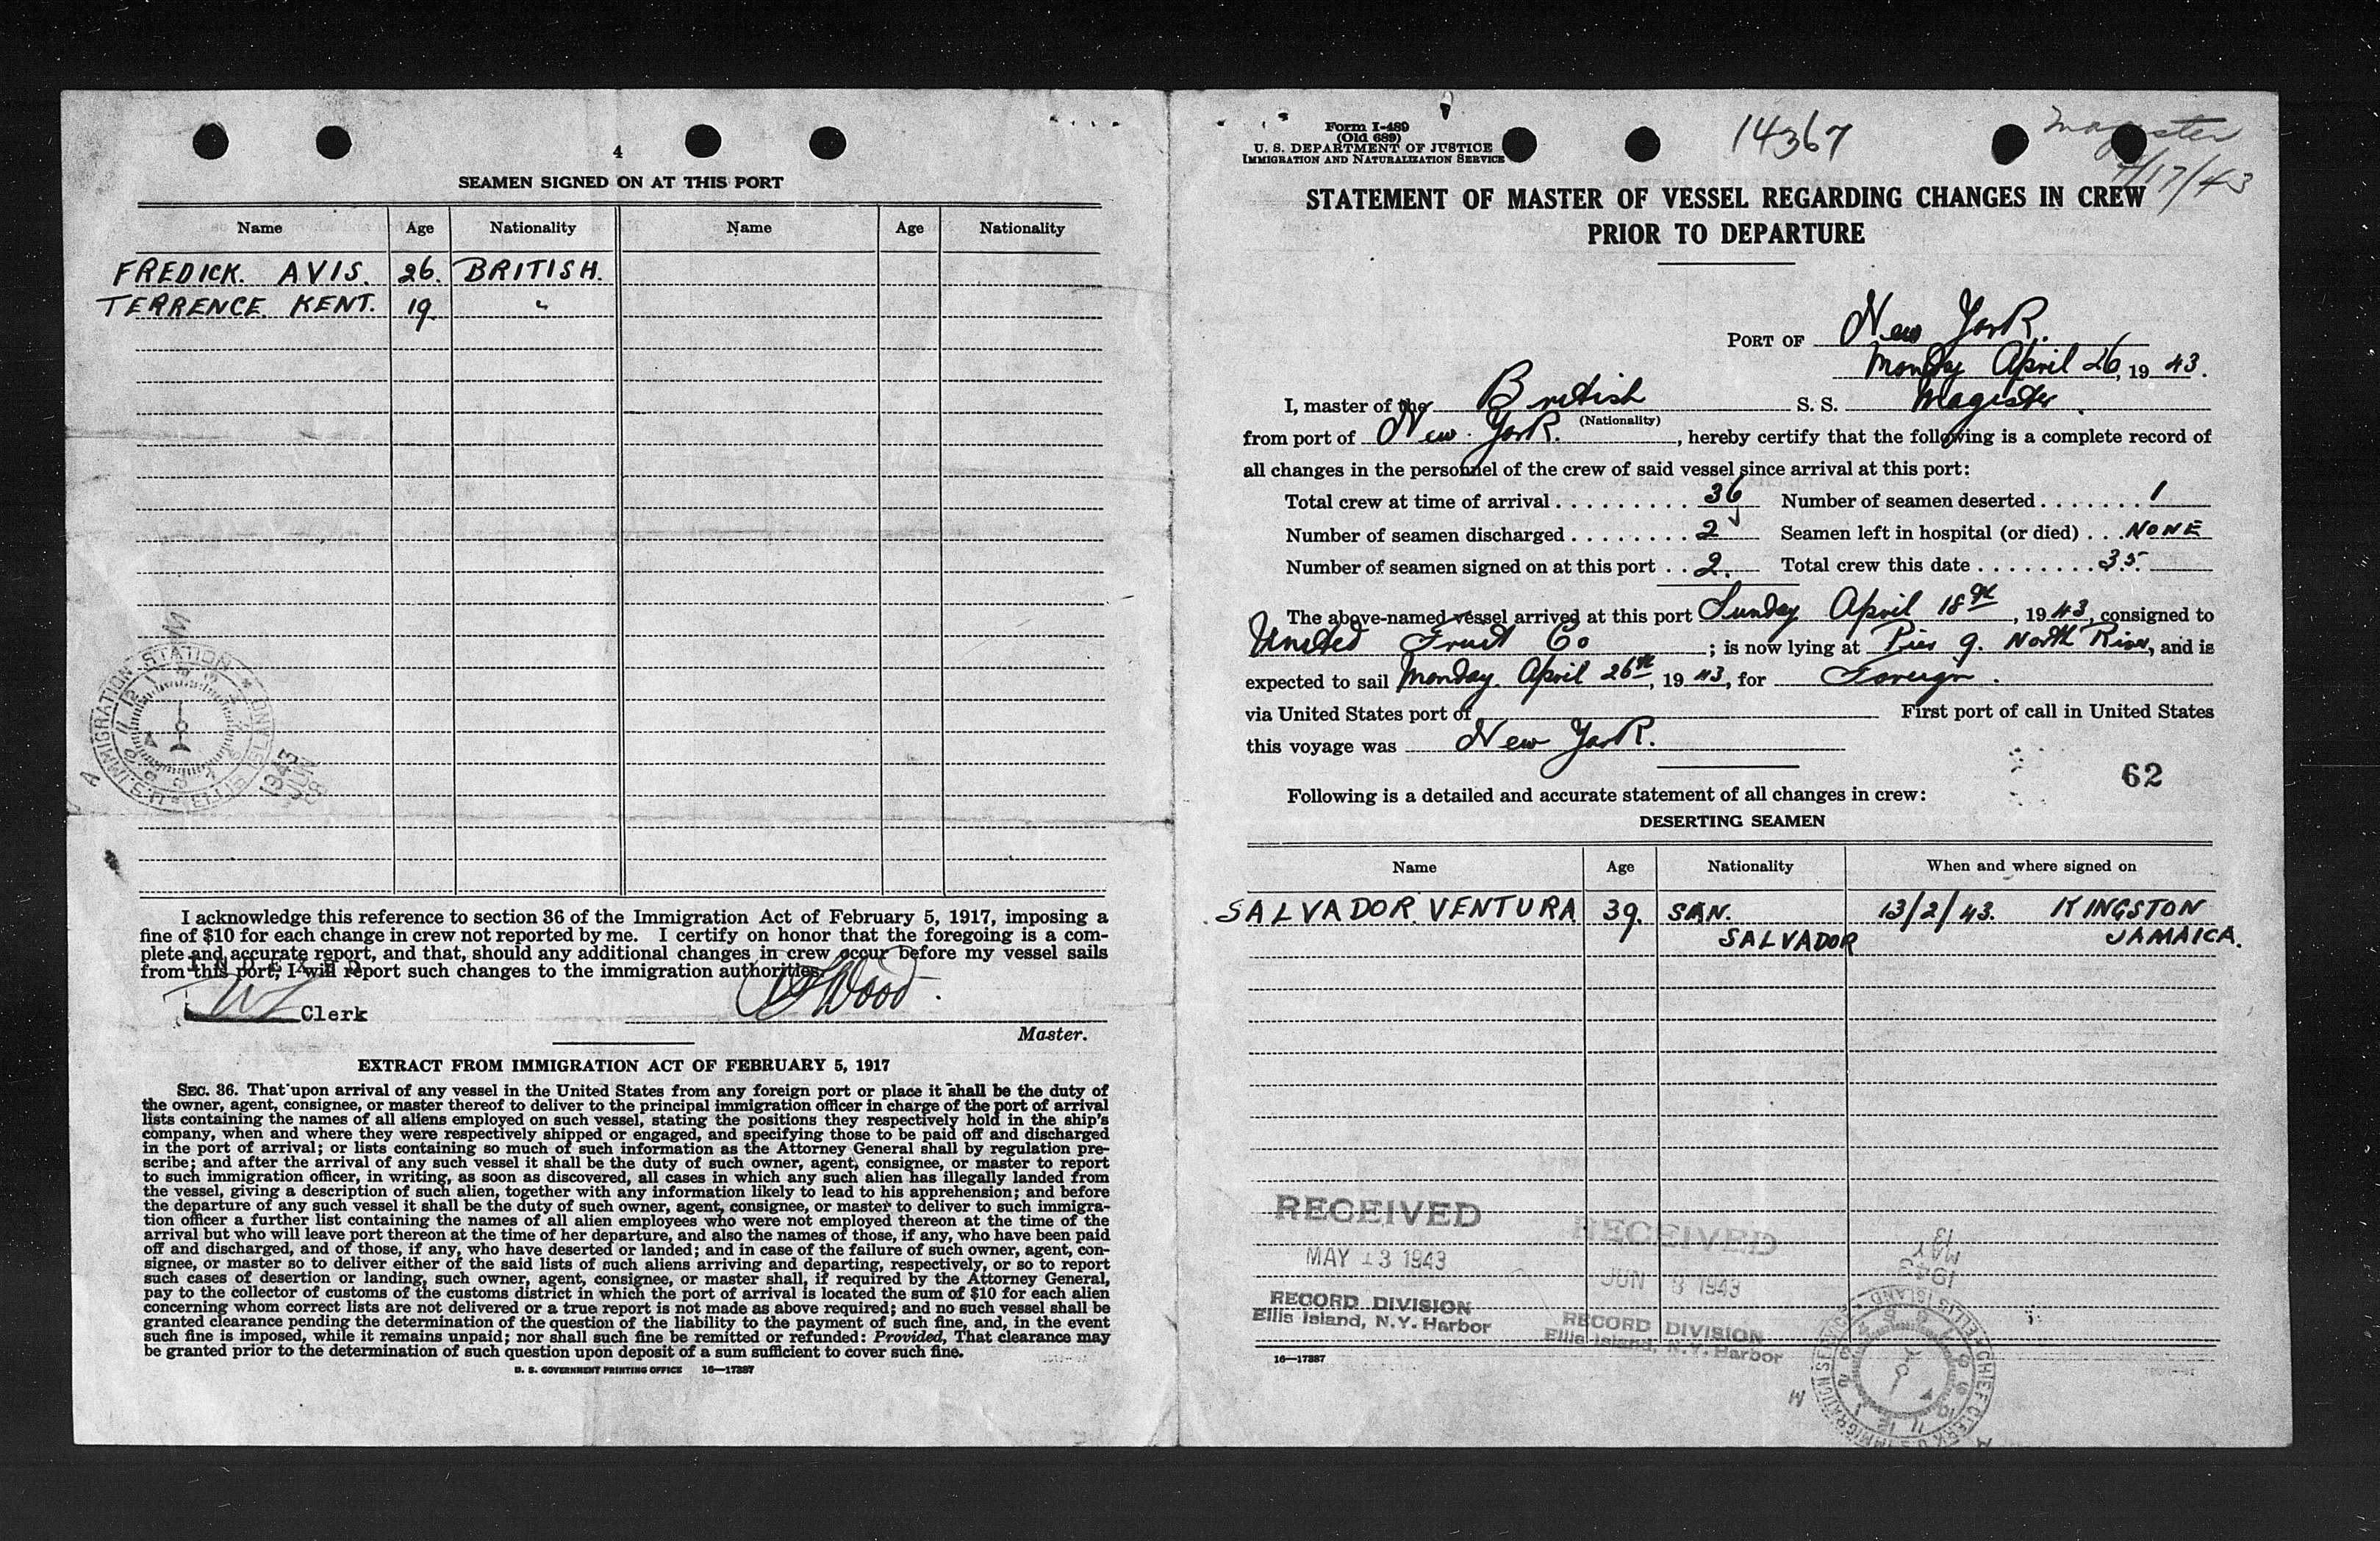 4
SEAMEN SIGNED ON AT THIS PORT
Name Age Nationality Name Age Nationality
FREDICK. AVIS. 26. BRITISH.
TERRENCE. KENT. 19 "
IMMIGRATION STATION * ELLIS ISLAND
1943
JUN
I acknowledge this reference to section 36 of the Immigration Act of February 5, 1917, imposing a
fine of $10 for each change in crew not reported by me. I certify on honor that the foregoing is a com-
plete and accurate report, and that, should any additional changes in crew occur before my vessel sails
from this port, I will report such changes to the immigration authorities.
INDEXED
Clerk
Wood.
Master.
EXTRACT FROM IMMIGRATION ACT OF FEBRUARY 5, 1917
SEC. 36. That upon arrival of any vessel in the United States from any foreign port or place it shall be the duty of
the owner, agent, consignee, or master thereof to deliver to the principal immigration officer in charge of the port of arrival
lists containing the names of all aliens employed on such vessel, stating the positions they respectively hold in the ship's
company, when and where they were respectively shipped or engaged, and specifying those to be paid off and discharged
in the port of arrival; or lists containing so much of such information as the Attorney General shall by regulation pre-
scribe; and after the arrival of any such vessel it shall be the duty of such owner, agent, consignee, or master to report
to such immigration officer, in writing, as soon as discovered, all cases in which any such alien has illegally landed from
the vessel, giving a description of such alien, together with any information likely to lead to his apprehension; and before
the departure of any such vessel it shall be the duty of such owner, agent, consignee, or master to deliver to such immigra-
tion officer a further list containing the names of all alien employees who were not employed thereon at the time of the
arrival but who will leave port thereon at the time of her departure, and also the names of those, if any, who have been paid
off and discharged, and of those, if any, who have deserted or landed; and in case of the failure of such owner, agent, con-
signee, or master so to deliver either of the said lists of such aliens arriving and departing, respectively, or so to report
such cases of desertion or landing, such owner, agent, consignee, or master shall, if required by the Attorney General,
pay to the collector of customs of the customs district in which the port of arrival is located the sum of $10 for each alien
concerning whom correct lists are not delivered or a true report is not made as above required; and no such vessel shall be
granted clearance pending the determination of the question of the liability to the payment of such fine, and, in the event
such fine is imposed, while it remains unpaid; nor shall such fine be remitted or refunded: Provided, That clearance may
be granted prior to the determination of such question upon deposit of a sum sufficient to cover such fine.
U. S. GOVERNMENT PRINTING OFFICE 16—17387
Form I-489
(Old 689)
U. S. DEPARTMENT OF JUSTICE
IMMIGRATION AND NATURALIZATION SERVICE
14367
Magister
4/17/43
STATEMENT OF MASTER OF VESSEL REGARDING CHANGES IN CREW
PRIOR TO DEPARTURE
PORT OF New York.
Monday April 26, 19 43.
I, master of the British S. S. Magister.
(Nationality)
from port of New York. , hereby certify that the following is a complete record of
all changes in the personnel of the crew of said vessel since arrival at this port:
Total crew at time of arrival . . . . . . . . . . 36 Number of seamen deserted . . . . . . . 1
Number of seamen discharged . . . . . . . . 2 Seamen left in hospital (or died) . . . NONE
Number of seamen signed on at this port . . 2. Total crew this date . . . . . . . . 35.
The above-named vessel arrived at this port Sunday April 18th , 19 43, consigned to
United Fruit Co ; is now lying at Pier 9. North River, and is
expected to sail Monday. April 26th, 19 43, for Foreign.
via United States port of First port of call in United States
this voyage was New York.
62
Following is a detailed and accurate statement of all changes in crew:
DESERTING SEAMEN
Name Age Nationality When and where signed on
SALVADOR. VENTURA 39. SAN. 13/2/43. KINGSTON
SALVADOR JAMAICA.
RECEIVED
MAY 13 1943
RECORD DIVISION
Ellis Island, N.Y. Harbor
RECEIVED
JUN 8 1943
RECORD DIVISION
Ellis Island, N.Y. Harbor
MAY
1943
CHIEF CLERK U.S. IMMIGRATION SERVICE * ELLIS ISLAND
16—17387